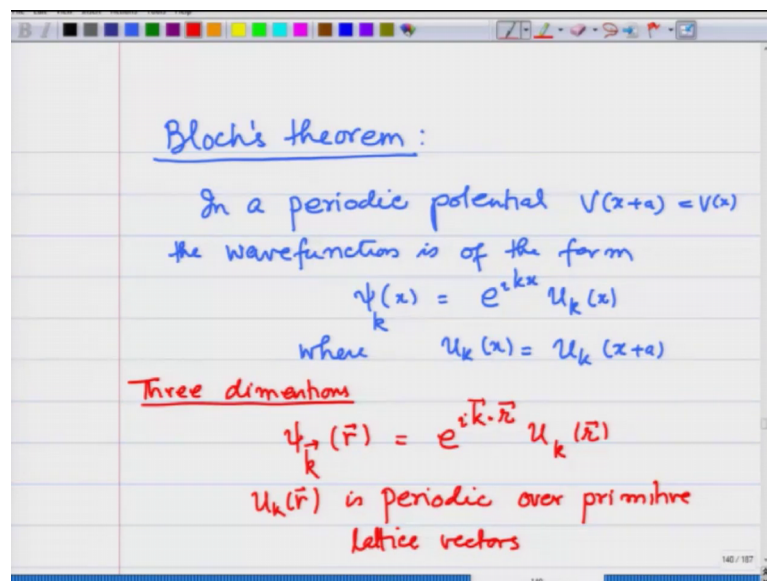 Bloch's theorem :
In a periodic potential V(x+a) = V(x)
the wavefunction is of the form
ψ_k(x) = e^{ikx} u_k(x)
where u_k(x) = u_k(x+a)
Three dimentions
ψ_{\vec{k}}(\vec{r}) = e^{i\vec{k}·\vec{r}} u_k(\vec{r})
u_k(\vec{r}) is periodic over primitive
lattice vectors
140 / 187